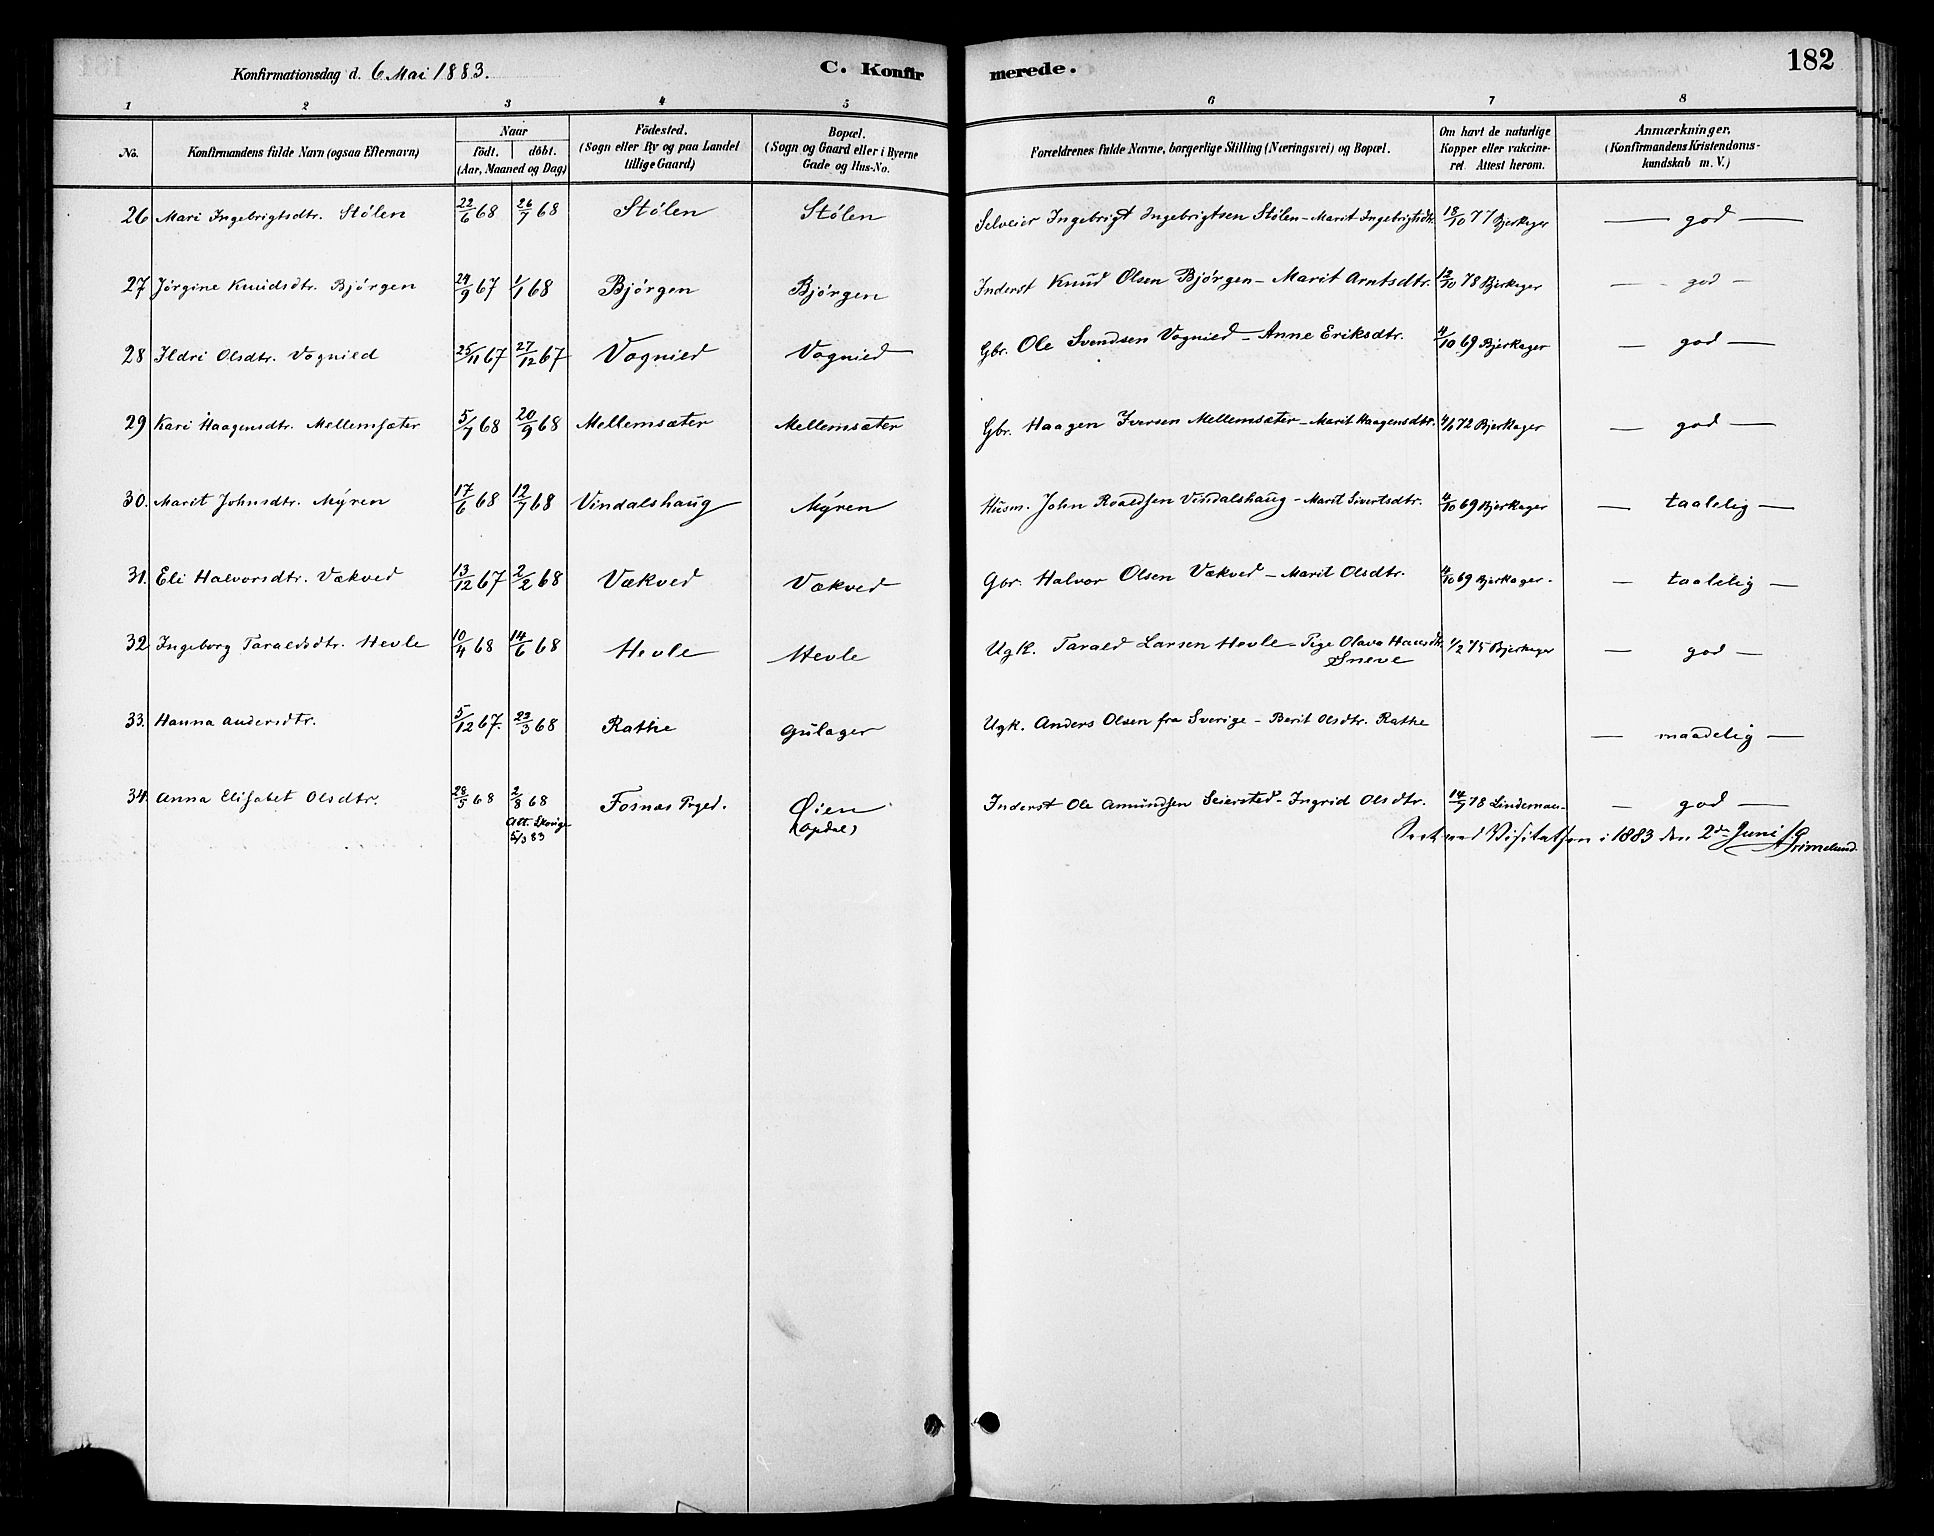 Konfirmationsdag d. 6 Mai 1883. C. Konfirmerede. 182
1 2 3 4 5 6 7 8
No. Konfirmandens fulde Navn (ogsaa Efternavn) Naar födt. döbt. (Aar, Maaned og Dag) Födested. (Sogn eller By og paa Landet tillige Gaard) Bopæl. (Sogn og Gaard eller i Byerne Gade og Hus-No. Forældrenes fulde Navne, borgerlige Stilling (Næringsvei) og Bopæl. Om havt de naturlige Kopper eller vakcineret. Attest herom. Anmærkninger. (Konfirmandens Kristendomskundskab m. V.)
26 Mari Ingebrigtsdtr. Stölen 22/6 68 26/7 68 Stölen Stölen Selveier Ingebrigt Ingebrigtsen Stölen – Marit Ingebrigtsdtr. 18/10 77 Bjerkager — god —
27 Jörgine Knudsdtr. Björgen 24/9 67 1/1 68 Björgen Björgen Inderst Knud Olsen Björgen – Marit Arntsdtr. 12/10 78 Bjerkager — god —
28 Ildri Olsdtr. Vognild 25/11 67 27/12 67 Vognild Vognild Gbr. Ole Svendsen Vognild – Anne Eriksdtr. 4/10 69 Bjerkager — god —
29 Kari Haagensdtr. Mellemsæter 5/7 68 20/9 68 Mellemsæter Mellemsæter Gbr. Haagen Iversen Mellemsæter – Marit Haagensdtr. 72 Bjerkager — god —
30. Marit Johnsdtr. Myren 17/6 68 12/7 68 Vindalshaug Myren Husm. John Roaldsen Vindalshaug – Marit Sivertsdtr. 4/10 69 Bjerkager — taalelig —
31. Eli Halvorsdtr. Vækved 13/12 67 2/2 68 Vækved Vækved Gbr. Halvor Olsen Vækved – Marit Olsdtr. 4/10 69 Bjerkager. — taalelig —
32 Ingeborg Taraldsdtr. Hevle 10/4 68 14/6 68 Hevle Hevle Ugk. Tarald Larsen Hevle – Pige Olava Hansdtr. Sneve 1/2 75 Bjerkager — god —
33. Hanna Andersdtr. 5/12 67. 23/3 68 Rathe Gulager Ugk. Anders Olsen fra Sverige – Berit Olsdtr. Rathe — maadelig —
34. Anna Elisabet Olsdtr. 28/5 68 2/8 68 Fosnæs Prgjd. Øien Inderst Ole Amundsen Seiersted – Ingrid Olsdtr. 14/9 78 Lindeman — god —
Att. 5/3 83 (Opdal)
ved Visitatsen i 1883 den 2den Juni Grimelund.